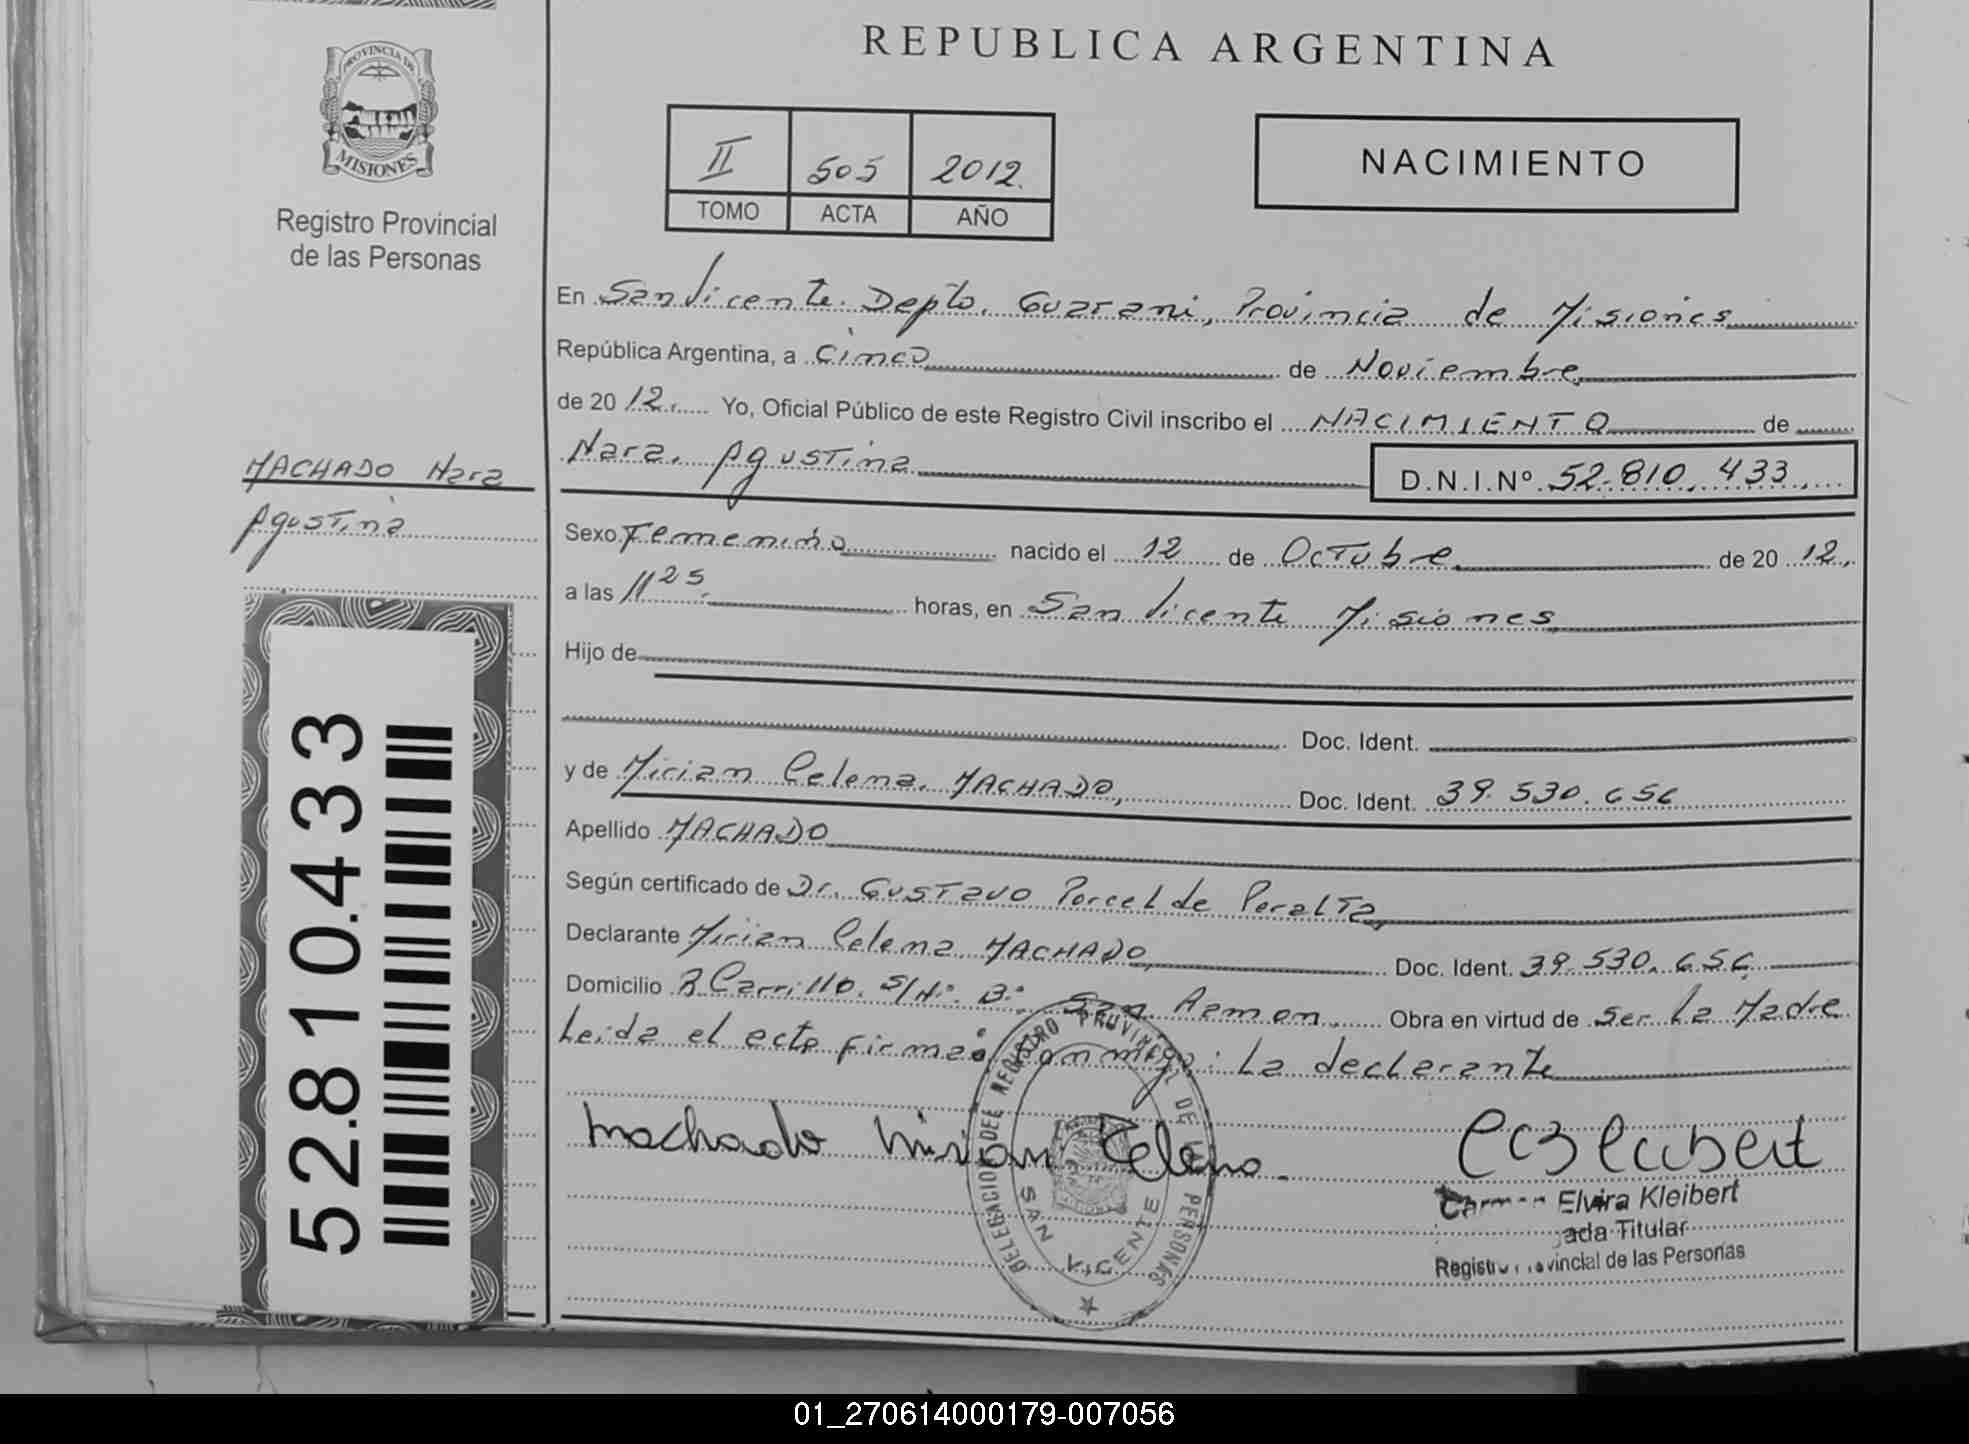 PROVINCIA DE
MISIONES
Registro Provincial
de las Personas
MACHADO Nara
Agustina
52.810.433
REPUBLICA ARGENTINA
II 505 2012.
TOMO ACTA AÑO
NACIMIENTO
En San Vicente. Depto. Guarani, Provincia de Misiones
República Argentina, a Cinco de Noviembre
de 2012. Yo, Oficial Público de este Registro Civil inscribo el NACIMIENTO de
Nara. Agustina D.N.I.Nº 52.810.433.
Sexo Femenino nacido el 12 de Octubre de 2012.
a las 11 25. horas, en San Vicente Misiones
Hijo de
Doc. Ident.
y de Mirian Celena. MACHADO, Doc. Ident. 39.530.656
Apellido MACHADO
Según certificado de Dr. Gustavo Porcel de Peralta,
Declarante Mirian Celena MACHADO, Doc. Ident. 39.530.656.
Domicilio R Carrillo. S/Nº. Bº. San Ramon. Obra en virtud de Ser La Madre
Leida el acta firma conmigo: La declarante
Machado Mirian Celena.
DELEGACION DEL REGISTRO PROVINCIAL DE LAS PERSONAS
SAN VICENTE
Elvira Kleibert
Titular
de las Personas
01_270614000179-007056